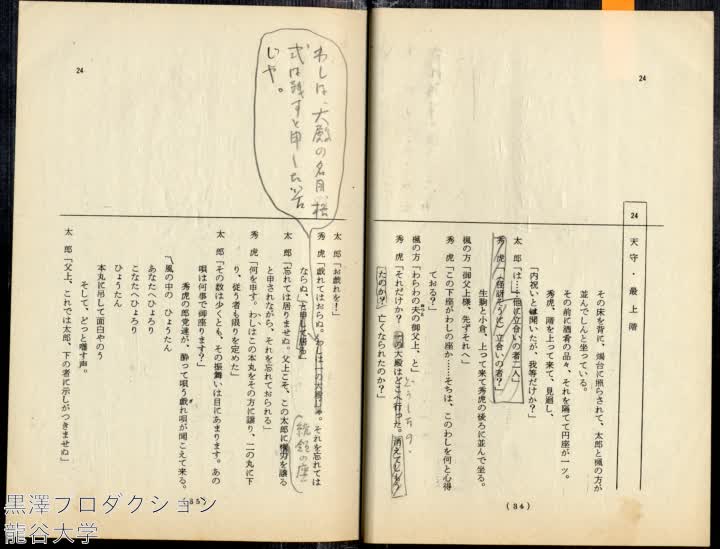 24
24 天守・最上階
その床を背に、燭台に照らされて、太郎と楓の方が
並んでしんと坐っている。
その前に酒肴の品々、それを隔てて円座が一ツ。
秀虎、階を上って来て、見廻し、
「内祝いとは聞いたが、我等だけか？」
太郎「は……他に立合いの者二人」
秀虎「(怪訝そうに)立合いの者？」
生駒と小倉、上って来て秀虎の後ろに並んで坐る。
楓の方「御父上様、先ずそれへ」
秀虎「この下座がわしの座か……そちは、このわしを何と心得
ておる？」
楓の方「わらわの夫の御父上、と」
秀虎「それだけか？ 一の大殿はどこへ行った。消えてしもう
たのか？ 亡くなられたのか？」
どうしたの、
(34)
24
わしは、大殿の名目、格
式は残すと申した筈
じゃ。
太郎「お戯れを！」
秀虎「戯れてはおらぬ。わしは一の大殿じゃ。それを忘れては
ならぬ、と申して居る」
太郎「忘れては居りませぬ。父上こそ、この太郎に権力を譲る
と申されながら、それを忘れておられる」
統領の座
秀虎「何を申す。わしはこの本丸をその方に譲り、二の丸に下
り、従う者も限りを定めた」
太郎「その数は少くとも、その振舞いは目にあまります。あの
唄は何事で御座ります？」
秀虎の郎党達が、酔って唄う戯れ唄が聞こえて来る。
風の中の ひょうたん
あなたへひょろり
こなたへひょろり
ひょうたん
本丸に吊して面白やのう
そして、どっと囃す声。
太郎「父上、これでは太郎、下の者に示しがつきませぬ」
(35)
黒澤プロダクション
龍谷大学